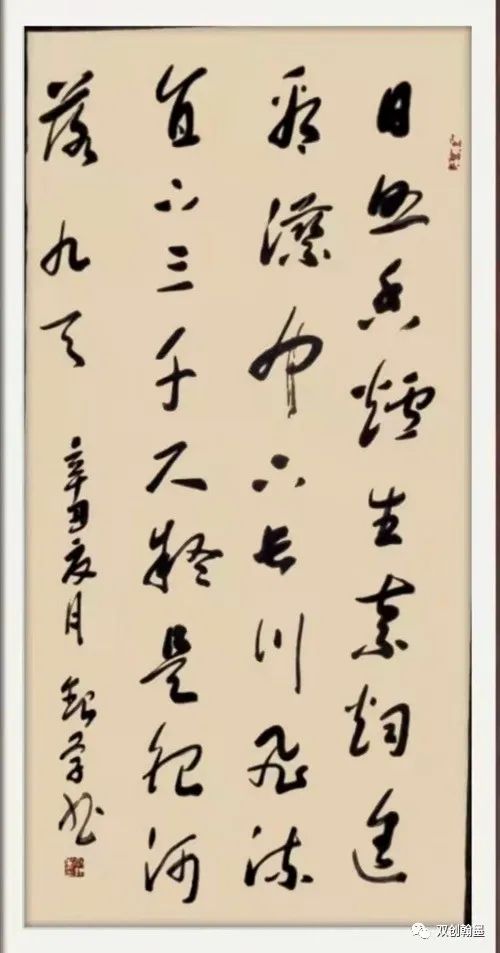 日照香爐生紫烟遥
看瀑布下长川飛流
直下三千尺疑是银河
落九天
辛丑夏月 书
双创翰墨